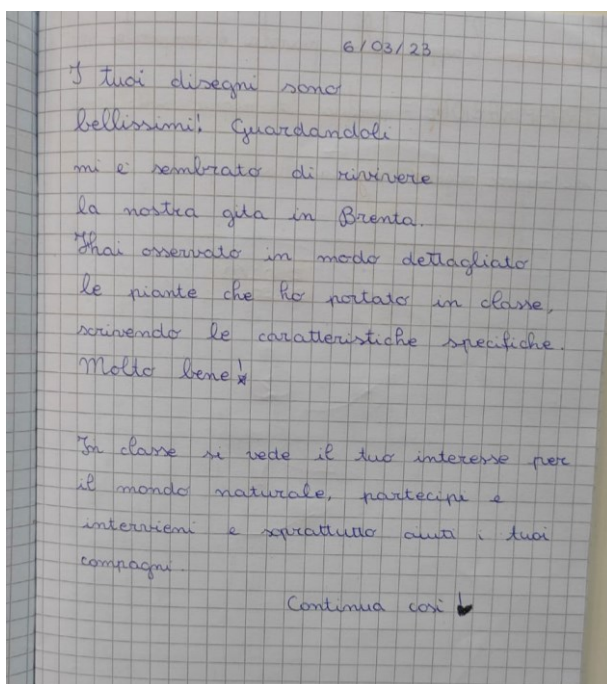 6/03/23
I tuoi disegni sono
bellissimi! Guardandoli
mi è sembrato di rivivere
la nostra gita in Brenta.
Hai osservato in modo dettagliato
le piante che ho portato in classe,
scrivendo le caratteristiche specifiche.
Molto bene!
In classe si vede il tuo interesse per
il mondo naturale, partecipi e
intervieni e soprattutto aiuti i tuoi
compagni.
Continua così!